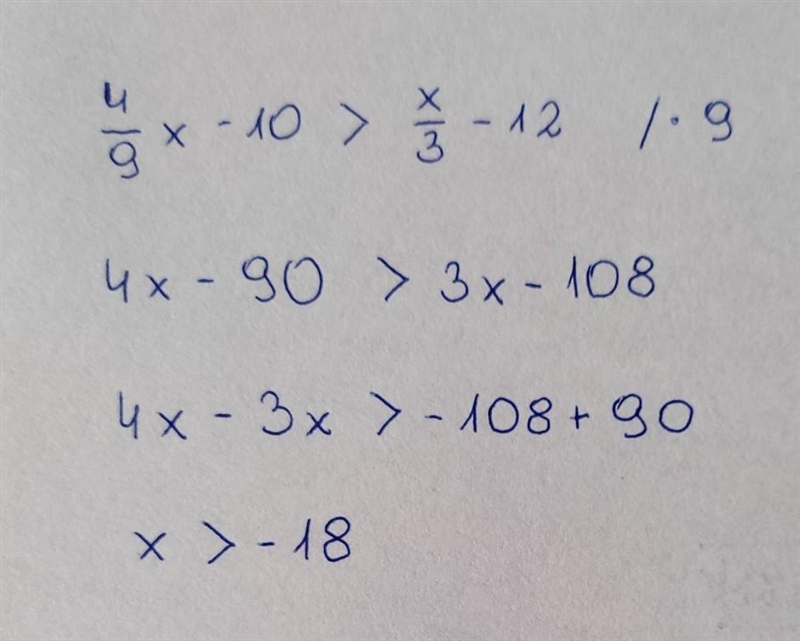 4/9 x - 10 > x/3 - 12 /· 9
4x - 90 > 3x - 108
4x - 3x > -108 + 90
x > -18